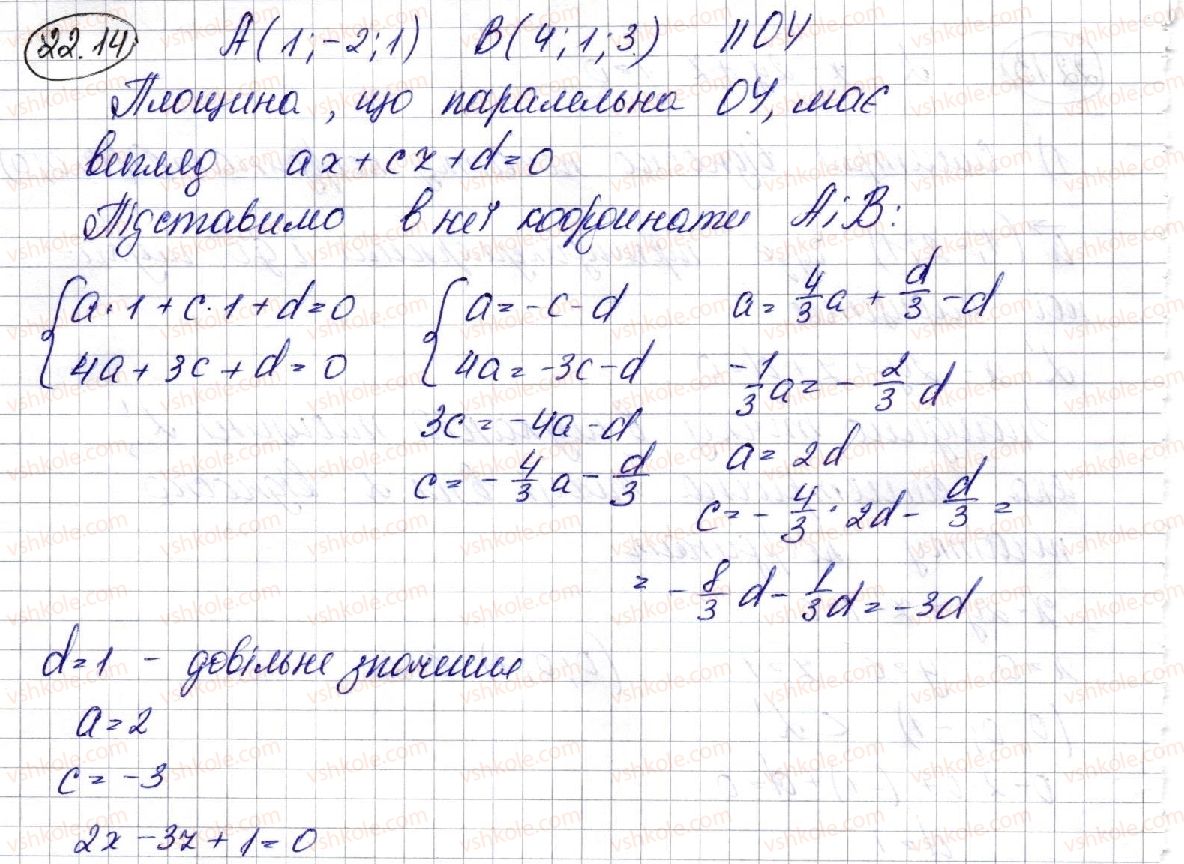 22.14 A(1;-2;1) B(4;1;3) ||OY
Площина, що паралельна OY, має
вигляд ax+cz+d=0
Підставимо в неї координати A і B:
{a·1+c·1+d=0
4a+3c+d=0
{a=-c-d
4a=-3c-d
3c=-4a-d
c=-4/3 a-d/3
a=4/3 a+d/3-d
-1/3 a=-2/3 d
a=2d
c=-4/3·2d-d/3=
=-8/3 d-1/3 d=-3d
d=1 - довільне значення
a=2
c=-3
2x-3z+1=0
vshkole.com